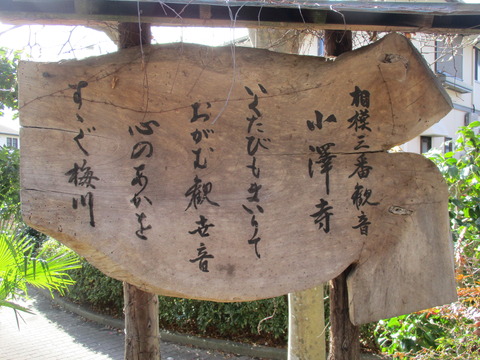 相模三番観音
小澤寺
いくたびもまいりて
おがむ観世音
心のあかを
すゝぐ梅川